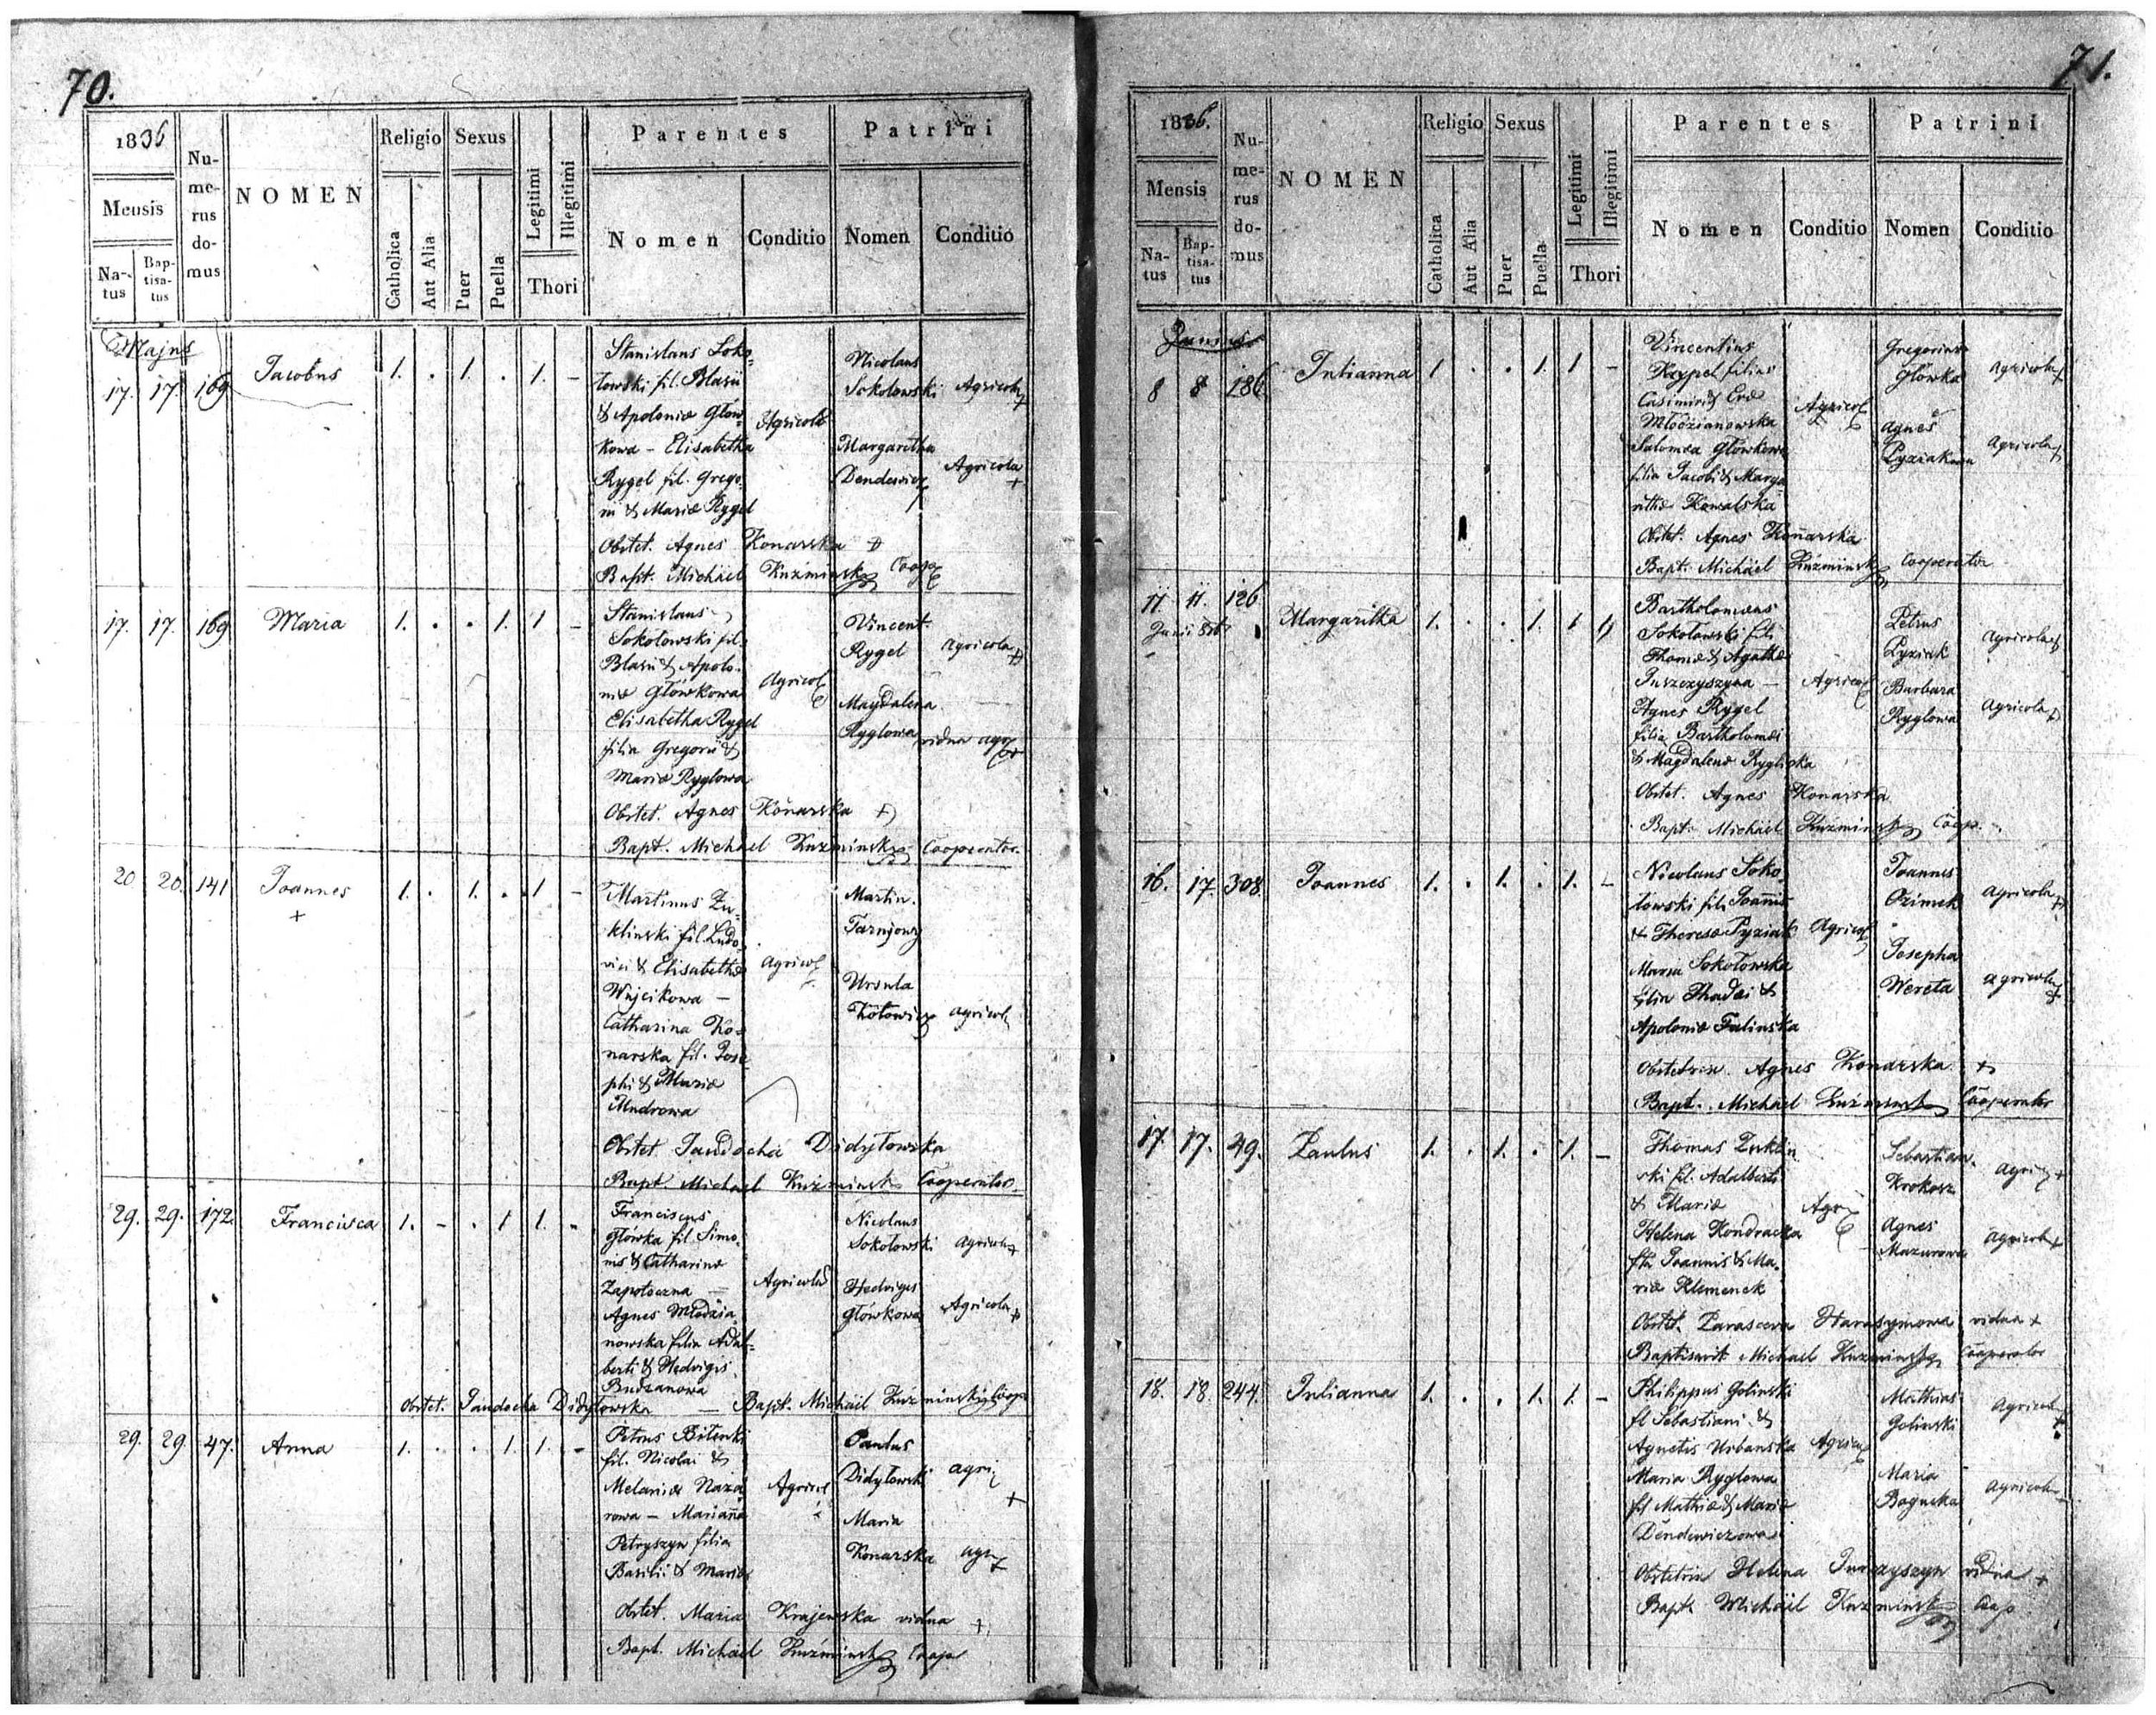 70.
1836
Mensis
Na-
tus
Bap-
tisa-
tus
Nu-
me-
rus
do-
mus
NOMEN
Religio
Catholica
Aut Alia
Sexus
Puer
Puella
Legitimi
Illegitimi
Thori
Parentes
Nomen
Conditio
Patrini
Nomen
Conditio
Majus
17. 17. 169 Jacobus 1. . 1. . 1. -
Stanislaus Soko=
łowski fil. Blasii
& Apoloniæ Głów
kowa - Elisabetha
Rygel fil. Grego
rii & Mariæ Rygel
Agricolæ
Nicolaus
Sokołowski Agricola +
Margaretha
Dendewicz Agricola +
Obstet. Agnes Konarska +
Bapt. Michäel Kuźminski Coop
17. 17. 169 Maria 1. . . 1. 1 -
Stanislaus
Sokołowski fil.
Blasii & Apolo.
niæ Główkowa
Elisabetha Rygel
filia Gregorii &
Mariæ Ryglowa
Agricol
Vincent.
Rygel Agricola +
Magdalena
Ryglowa vidua agr +
Obstet. Agnes Konarska +
Bapt. Michäel Kuźminski Cooperator.
20 20. 141 Joannes 1. . 1. . 1 -
+
Martinus Żu=
kliński fil. Ludo
vici & Elisabethæ
Wujcikowa -
Catharina Ko=
narska fil. Jose
phi & Mariæ
Mudrowa
Agricol
Martin.
Ursula
Kotowicz agricol
Obstet. Jandocha Didyłowska
Bapt. Michael Kuźminski Cooperator
29. 29. 172 Francisca 1. - . 1 1. -
Franciscus
Główka fil Simo.
nis & Catharinæ
Zapotoczna -
Agnes Młodzia
nowska filia Adal=
berti & Hedvigis
Budzanowa
Agricolæ
Nicolaus
Sokołowski agricola +
Hedviges
Główkowa Agricola +
Obstet. Jandocha Didyłowska - Bapt. Michäel Kuźminski Coop
29. 29. 47. Anna 1. . . 1. 1. -
Petrus Bilenki
fil. Nicolai &
Melaniæ Naza
rowa - Marianna
Petryszyn filia
Basilii & Mariæ
Agricol
Paulus
Didyłowski agri +
Maria
Konarska agr
Obstet. Maria Krajewska vidua +
Bapt. Michäel Kuźminski Coop
71.
1836.
Mensis
Na-
tus
Bap-
tisa-
tus
Nu-
me-
rus
do-
mus
NOMEN
Religio
Catholica
Aut Alia
Sexus
Puer
Puella
Legitimi
Illegitimi
Thori
Parentes
Nomen
Conditio
Patrini
Nomen
Conditio
Junius
8 8 186 Julianna 1 . . 1. 1 -
Vincentius
Rygel filius
Casimiri & Evæ
Młodzianowska
Salomea Główkowa
filia Jacobi & Marga
rithæ Kowalska
Agricol
Gregorius
Główka agricola +
Agnes
Pyziakowa Agricola +
Obstet. Agnes Konarska
Bapt. Michäel Kuźminski Cooperator
11 11. 126 Margaritha 1. . . 1. 1
Bartholomæus
Sokołowski fil.
Thomæ & Agathæ
Juszczyszyna -
Agnes Rygel
filia Bartholomæi
& Magdalenæ Ryglicka
Agricol
Petrus
Pyziak agricola +
Barbara
Ryglowa agricola +
Obstet. Agnes Konarska
Bapt. Michäel Kuźminski Coop.
16. 17. 308. Joannes 1. . 1. . 1. -
Nicolaus Soko
łowski fil. Joannis
& Theresæ Pyziak
Maria Sokołowska
filia Thadæi &
Apoloniæ Falinska
Agricol
Joannes
Ozimek agricola +
Josepha
Wereta agricola +
Obstetrix. Agnes Konarska +
Bapt. Michäel Kuźminski Cooperator
17. 17. 49. Paulus 1. . 1. . 1. -
Thomas Żuklin
ski fil. Adalberti
& Mariæ
Helena Kondracka
fila Joannis & Ma.
riæ Klemenek
Agri
Sebastian.
Krokosz agri +
Agnes
Mazurowa agricol +
Obstet. Parasceva Harasymowa vidua +
Baptisavit Michael Kuzminski Cooperator
18. 18. 244. Julianna 1. . . 1. 1. -
Philippus Golinski
fil Sebastiani &
Agnetis Urbanska
Maria Ryglowa
fil Mathiæ & Mariæ
Dendewiczowa
Agricol
Mathias
Golinski Agricola +
Maria
Bogucka agricola
Obstetrix Helena Juszczyszyn vidua +
Bapt. Michäel Kuzminski Coop